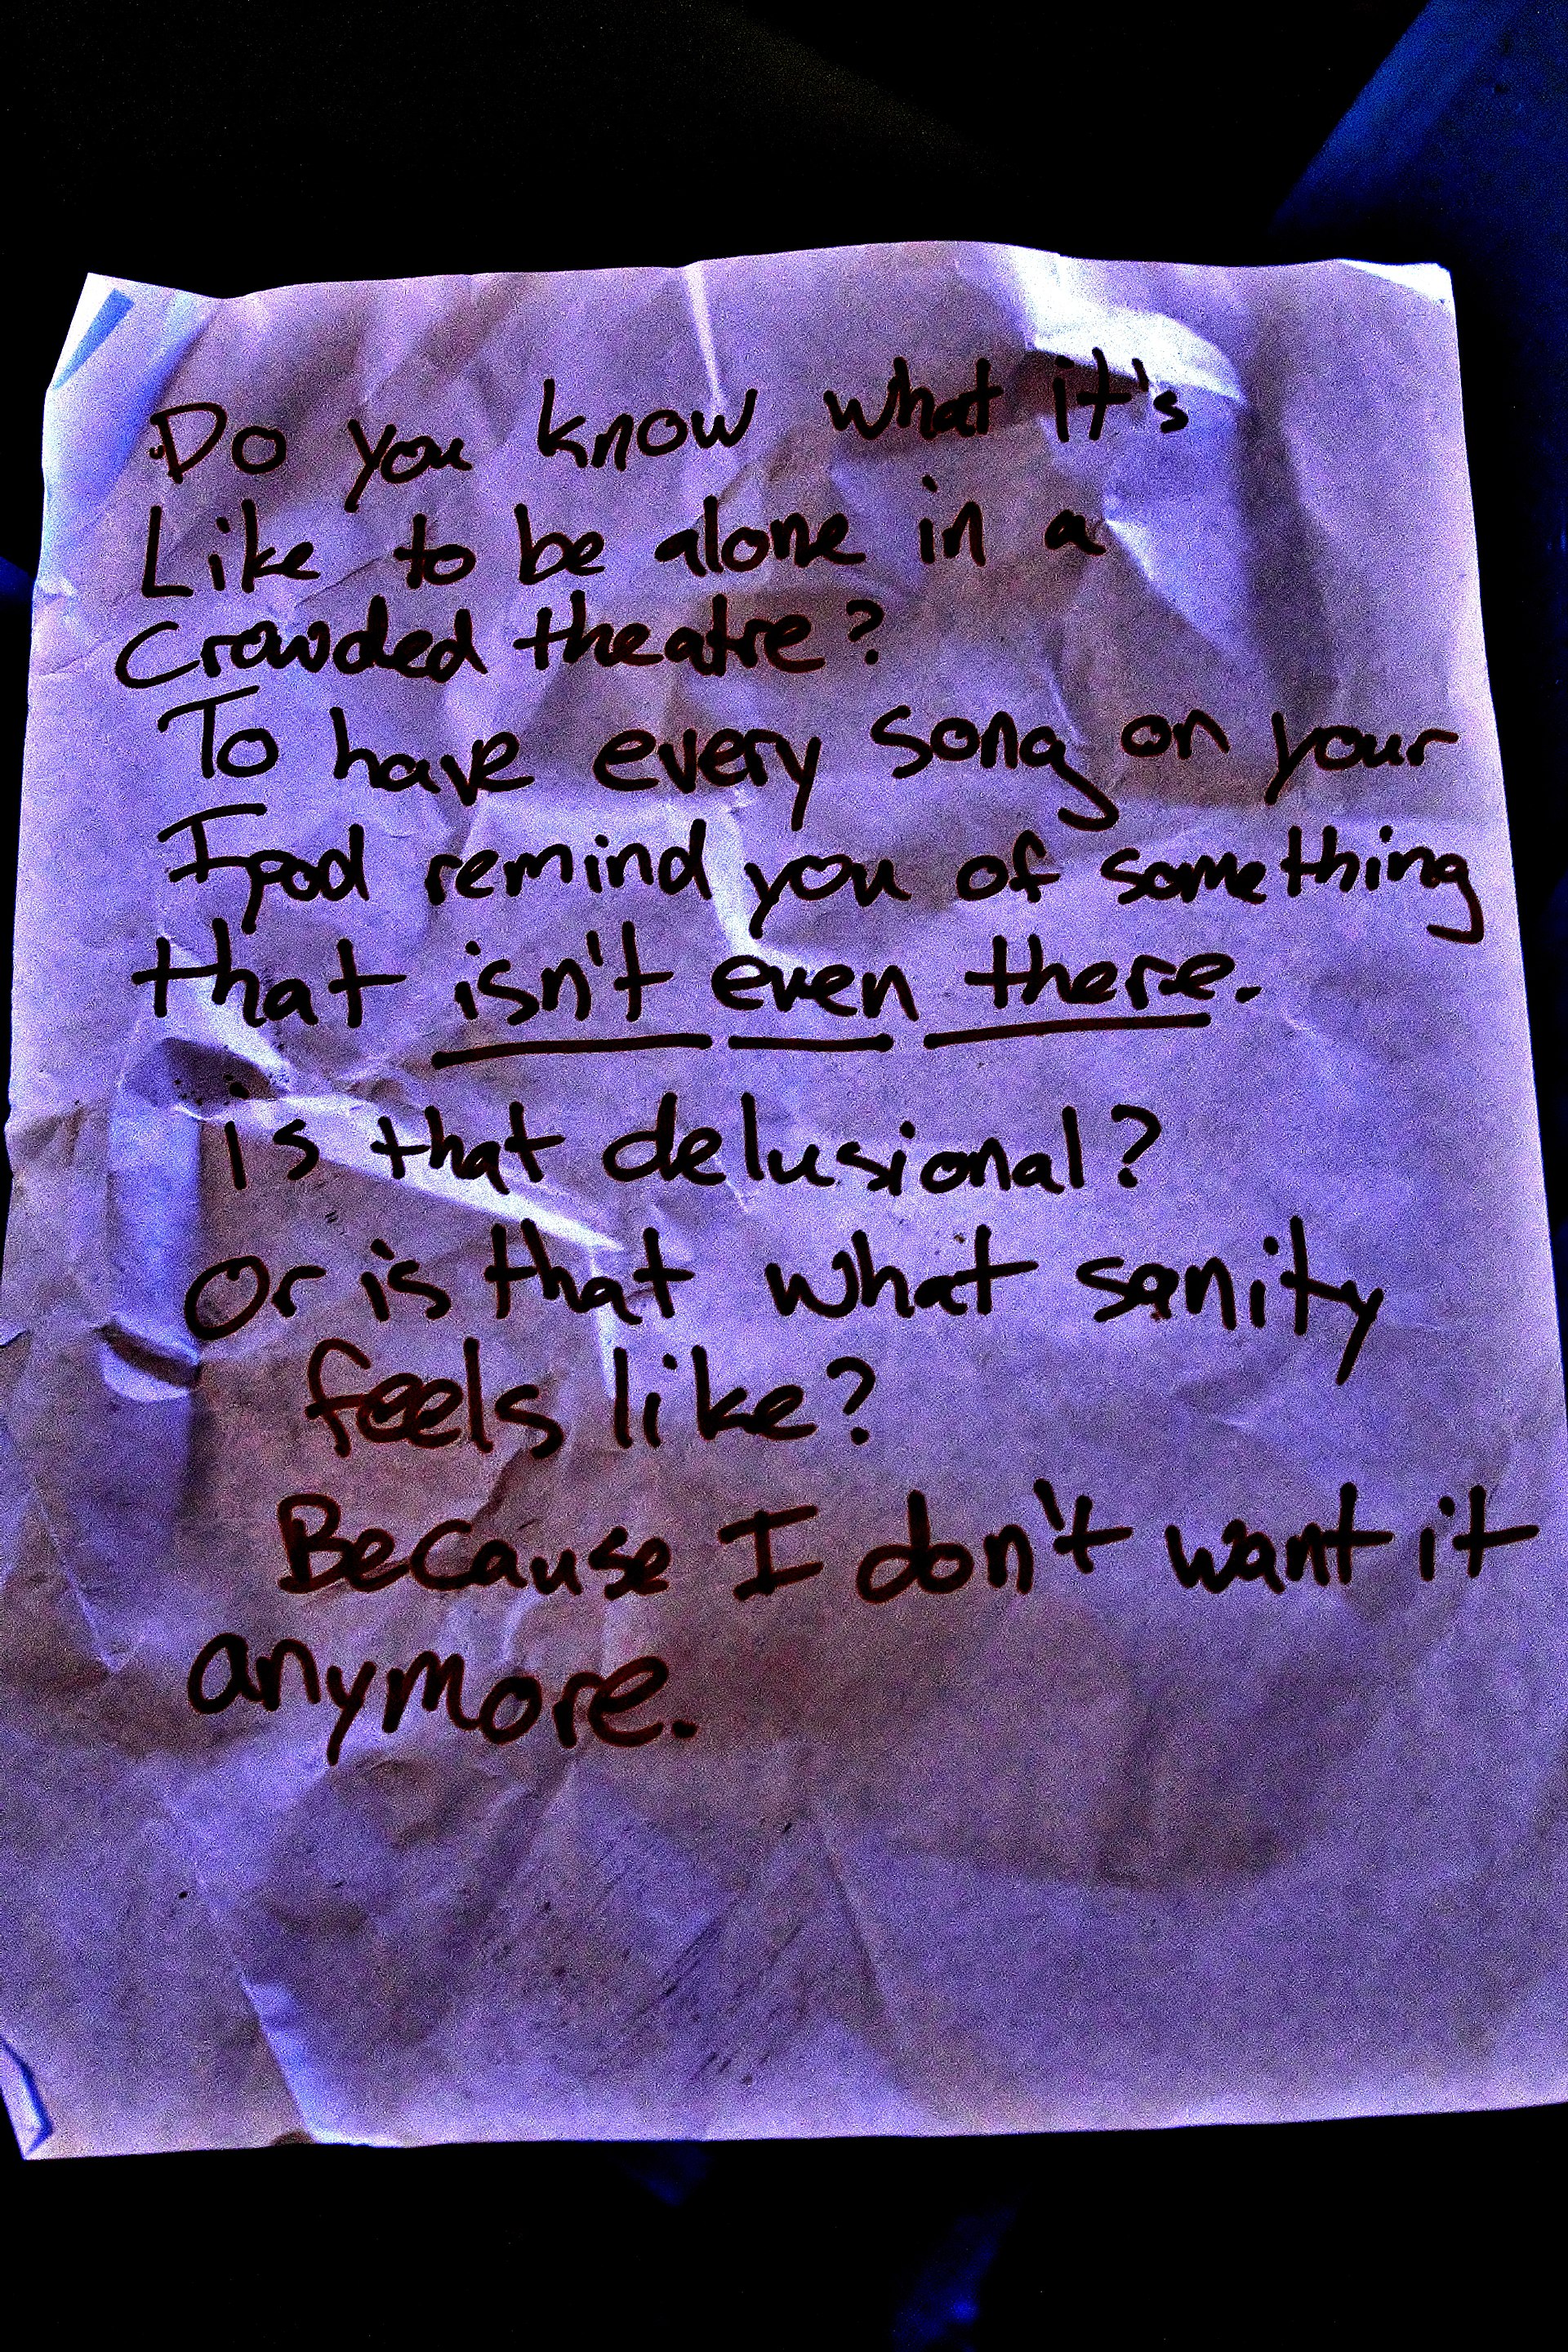 Do you know what it's
Like to be alone in a
Crowded theatre?
To have every song on your
Ipod remind you of something
that isn't even there.
is that delusional?
Or is that what sanity
feels like?
Because I don't want it
anymore.